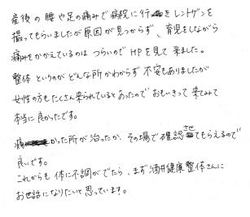 産後の腰や足の痛みで病院に行きレントゲンを
撮ってもらいましたが原因が見つからず、育児をしながら
痛みをかかえているのは つらいのでHPを見て来ました。
整体というのがどんな所かわからず不安もありましたが
女性の方もたくさん来られているとあったのでおもいきって来てみて
本当に良かったです。
痛かった所が治ったか、その場で確認させてもらえるので
良いです。
これからも体に不調がでたら、まず酒井健康整体さんに
お世話になりたいと思っています。